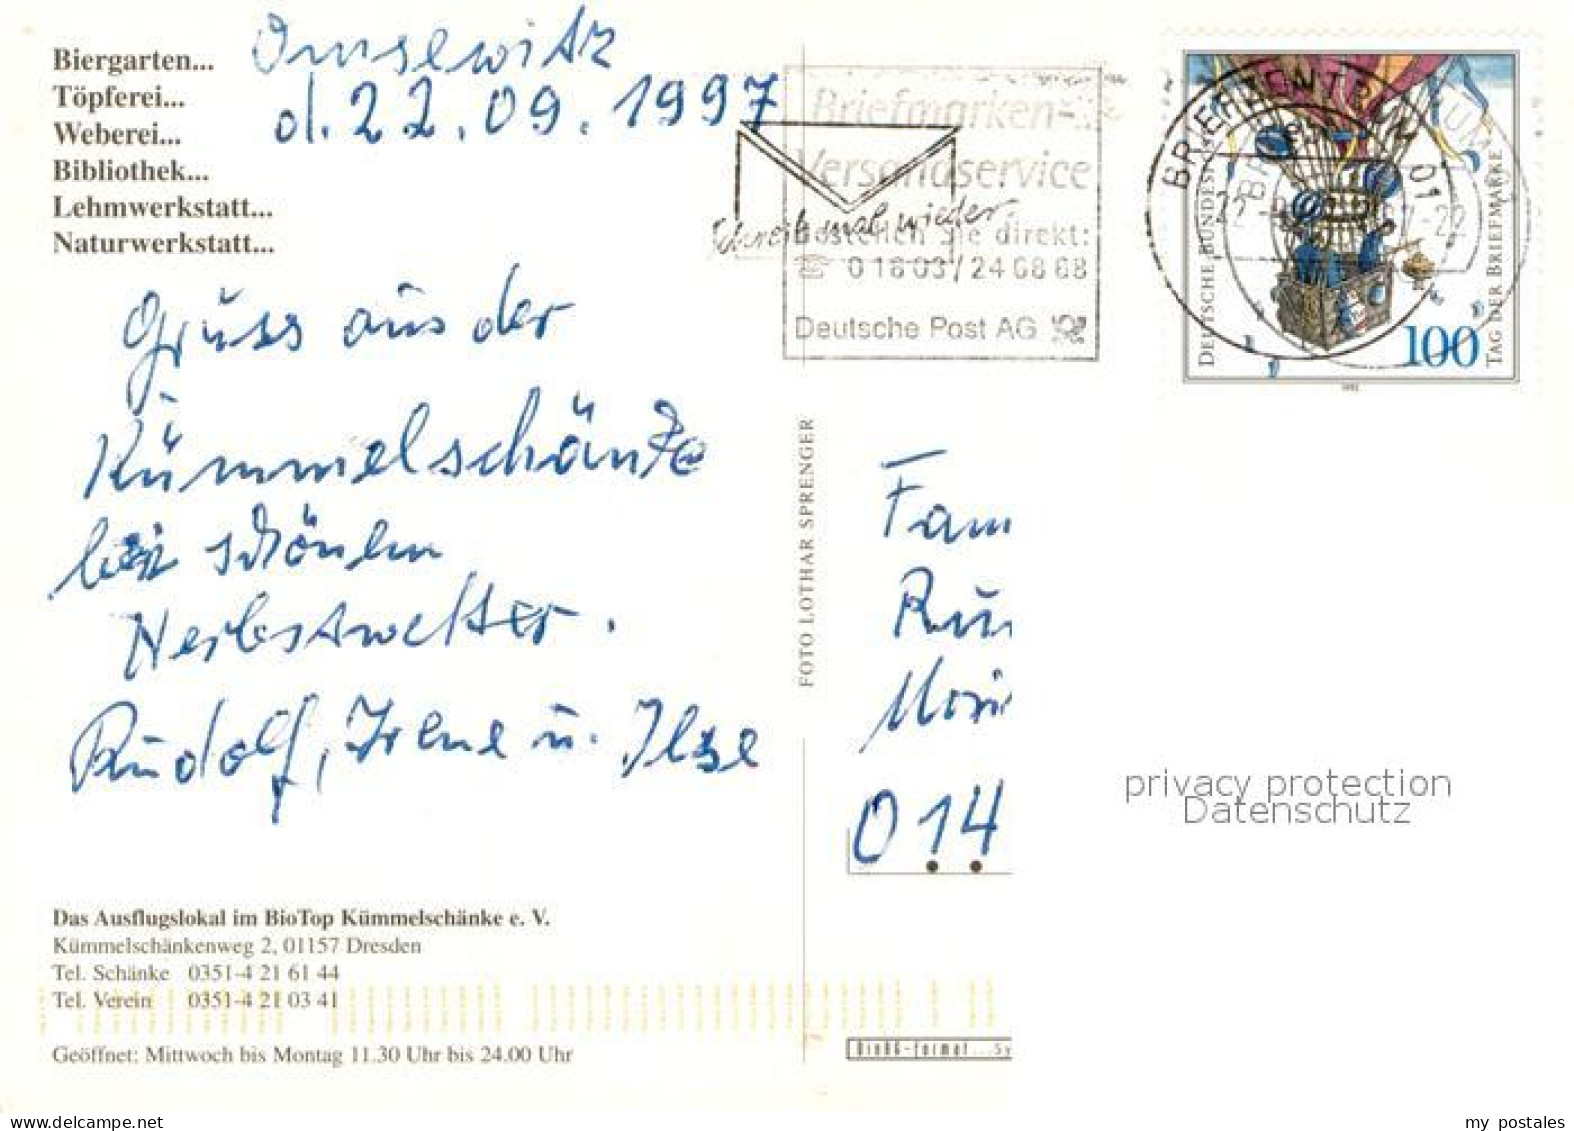 Biergarten...
Töpferei...
Weberei...
Bibliothek...
Lehmwerkstatt...
Naturwerkstatt...
Omsewitz
d. 22.09.1997
Gruss aus der
Kümmelschänke
bei schönen
Herbstwetter.
Rudolf, Irene u. Ilse
Das Ausflugslokal im BioTop Kümmelschänke e. V.
Kümmelschänkenweg 2, 01157 Dresden
Tel. Schänke 0351-4 21 61 44
Tel. Verein 0351-4 21 03 41
Geöffnet: Mittwoch bis Montag 11.30 Uhr bis 24.00 Uhr
FOTO LOTHAR SPRENGER
Briefmarken-
Versandservice
Schreib mal wieder
bestellen Sie direkt:
01803/246868
Deutsche Post AG
BRIEFZENTRUM 01
DEUTSCHE BUNDESPOST
100
TAG DER BRIEFMARKE
Fam
014
privacy protection
Datenschutz
www.delcampe.net
my_postales